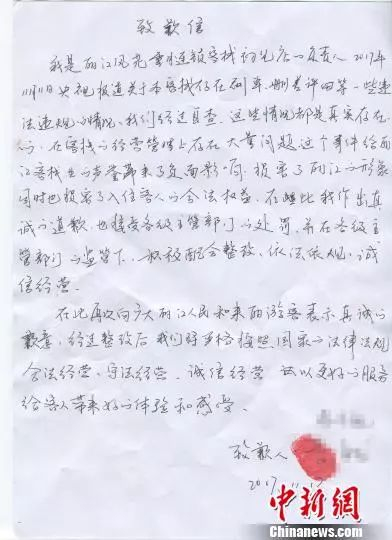 致歉信
我是丽江风花雪月连锁客栈初见店负责人 2017年
11月11日央视报道关于本客栈存在刷单、删差评等一些违
法违规的情况,我们经过自查,这些情况都是真实存在
的,在客栈的经营管理上存在大量问题这个事件给丽
江客栈业的声誉带来了负面影响,损害了丽江的形象
同时也损害了入住客人的合法权益,在此我作出真
诚的道歉,也接受各级主管部门的处罚,并在各级主
管部门的监管下,积极配合整改、依法依规、诚
信经营。
在此再次向广大丽江人民和来丽游客表示真诚的
歉意,经过整改后我们将严格按照国家的法律法规
合法经营、守法经营、诚信经营 并以更好的服务
给客人带来好的体验和感受。
致歉人
2017.11.
中新网
Chinanews.com